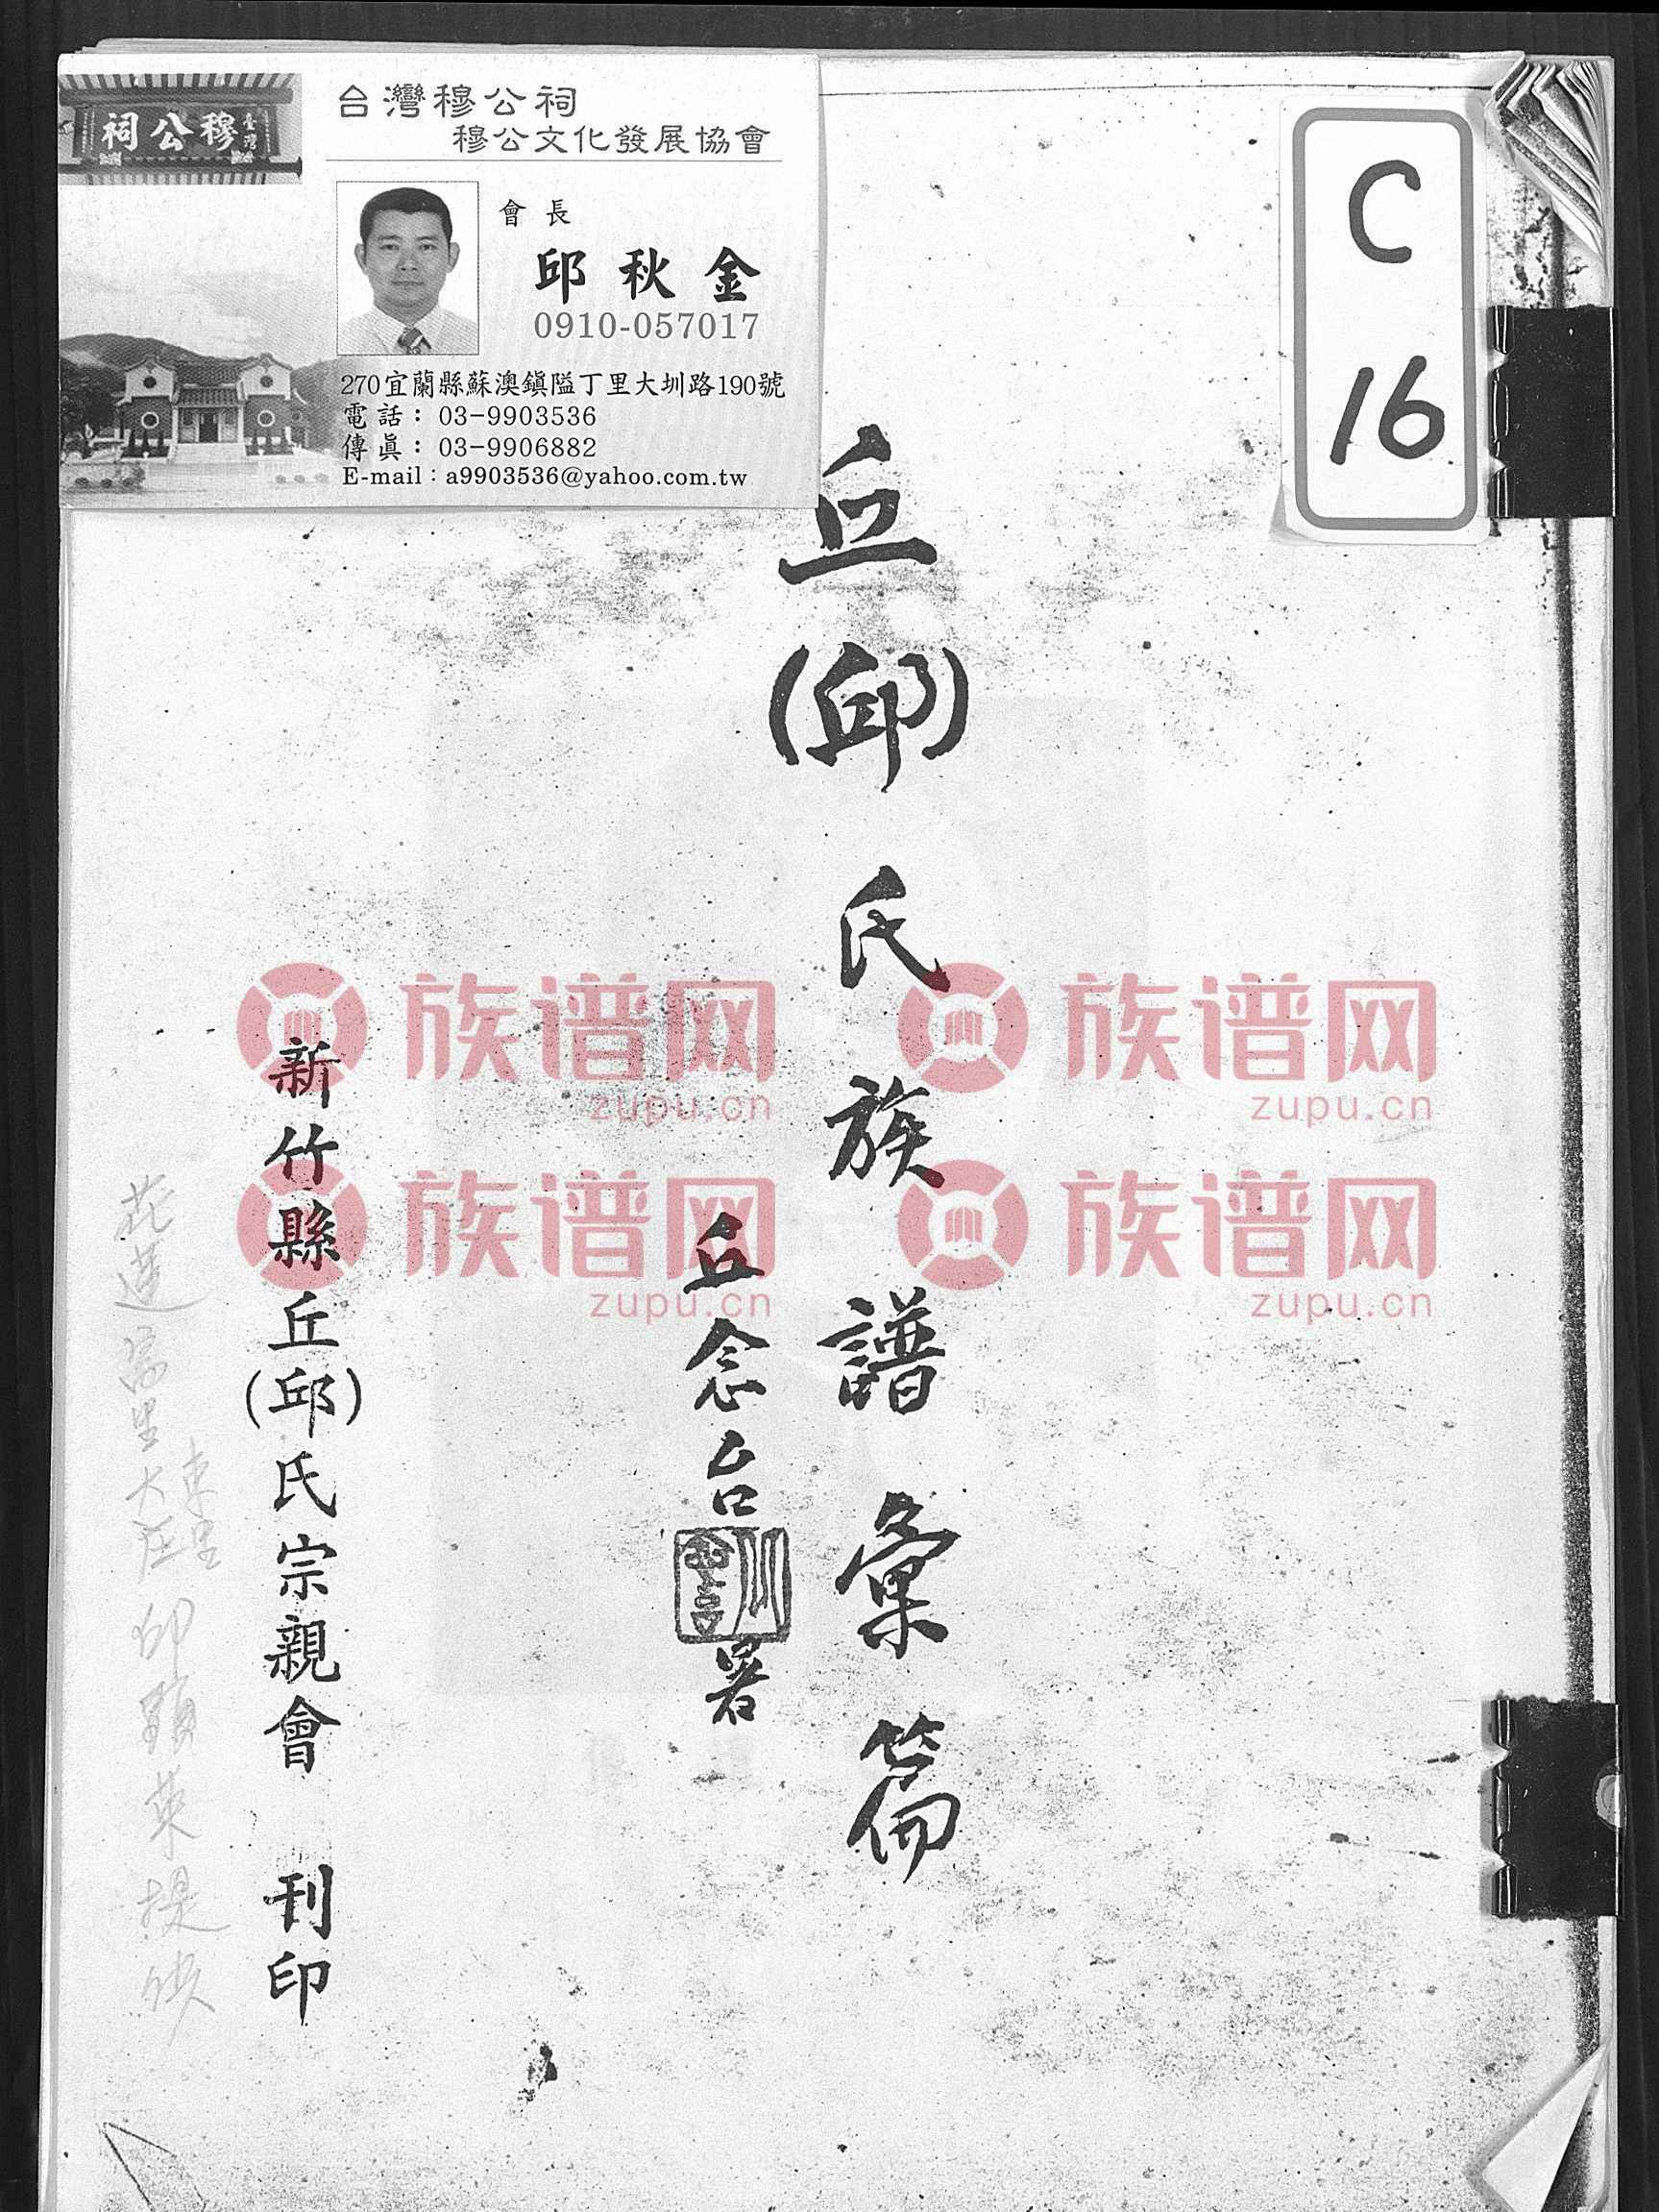 臺灣
穆公祠
台灣穆公祠
穆公文化發展協會
會長
邱秋金
0910-057017
270宜蘭縣蘇澳鎮隘丁里大圳路190號
電話：03-9903536
傳真：03-9906882
E-mail：a9903536@yahoo.com.tw
C
16
丘(邱)氏族譜彙篇
丘念台 署
新竹縣丘(邱)氏宗親會 刊印
東里
族谱网
zupu.cn
族谱网
zupu.cn
族谱网
zupu.cn
族谱网
zupu.cn